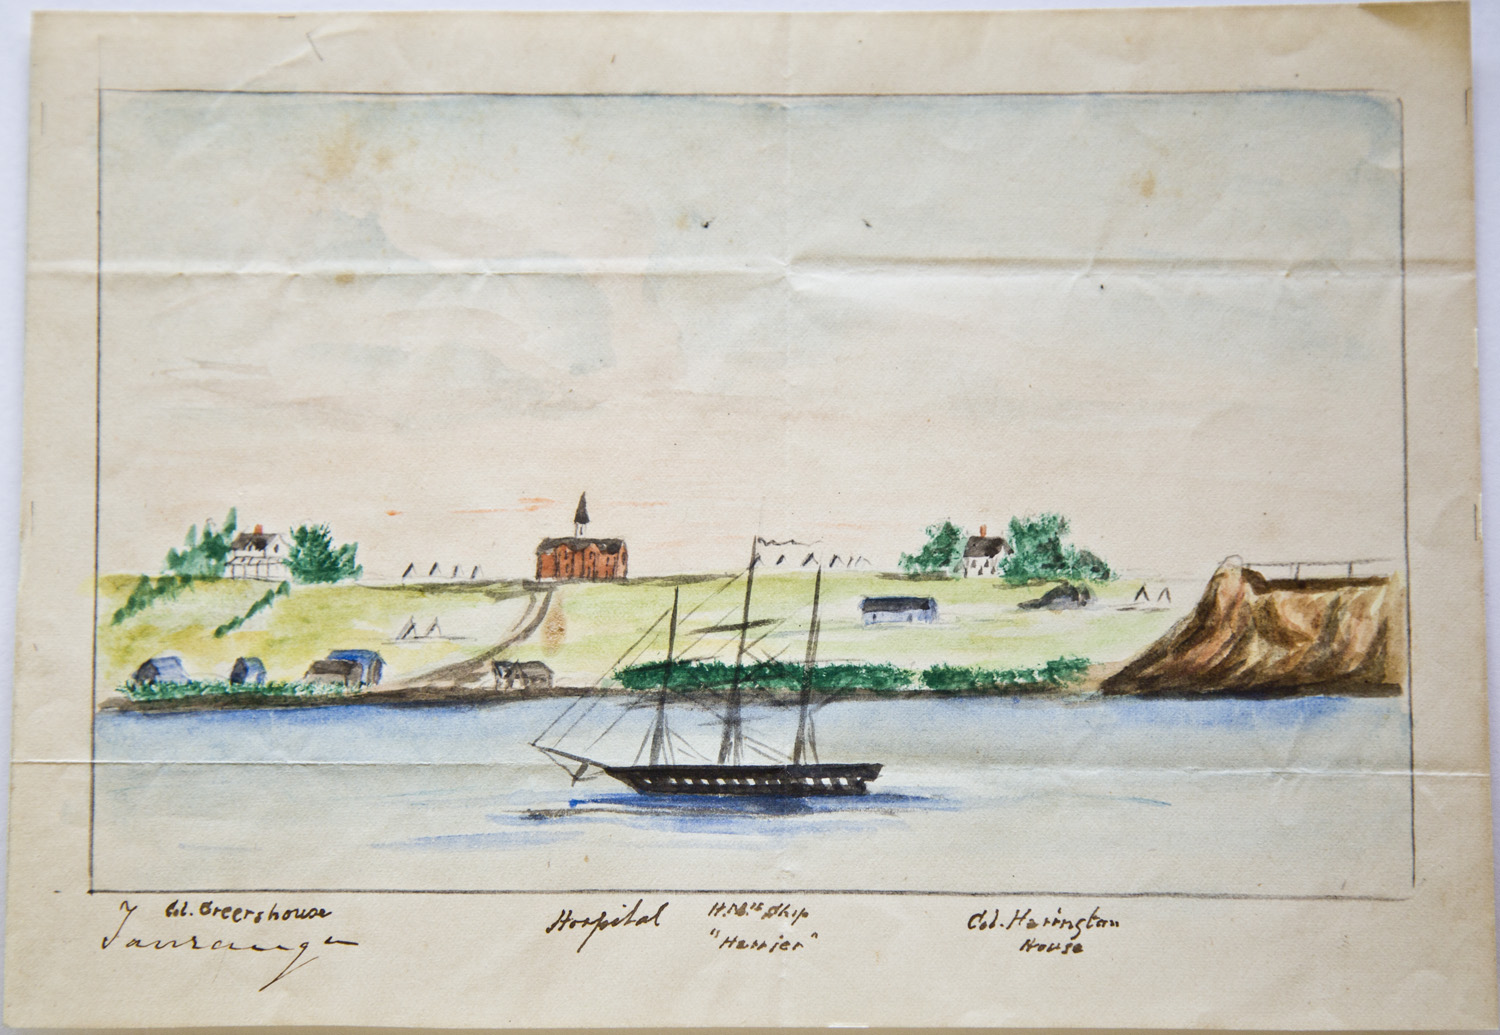 Col. Greers house
Tauranga
Hospital
H.M.'s Ship
"Harrier"
Col. Harrington
House